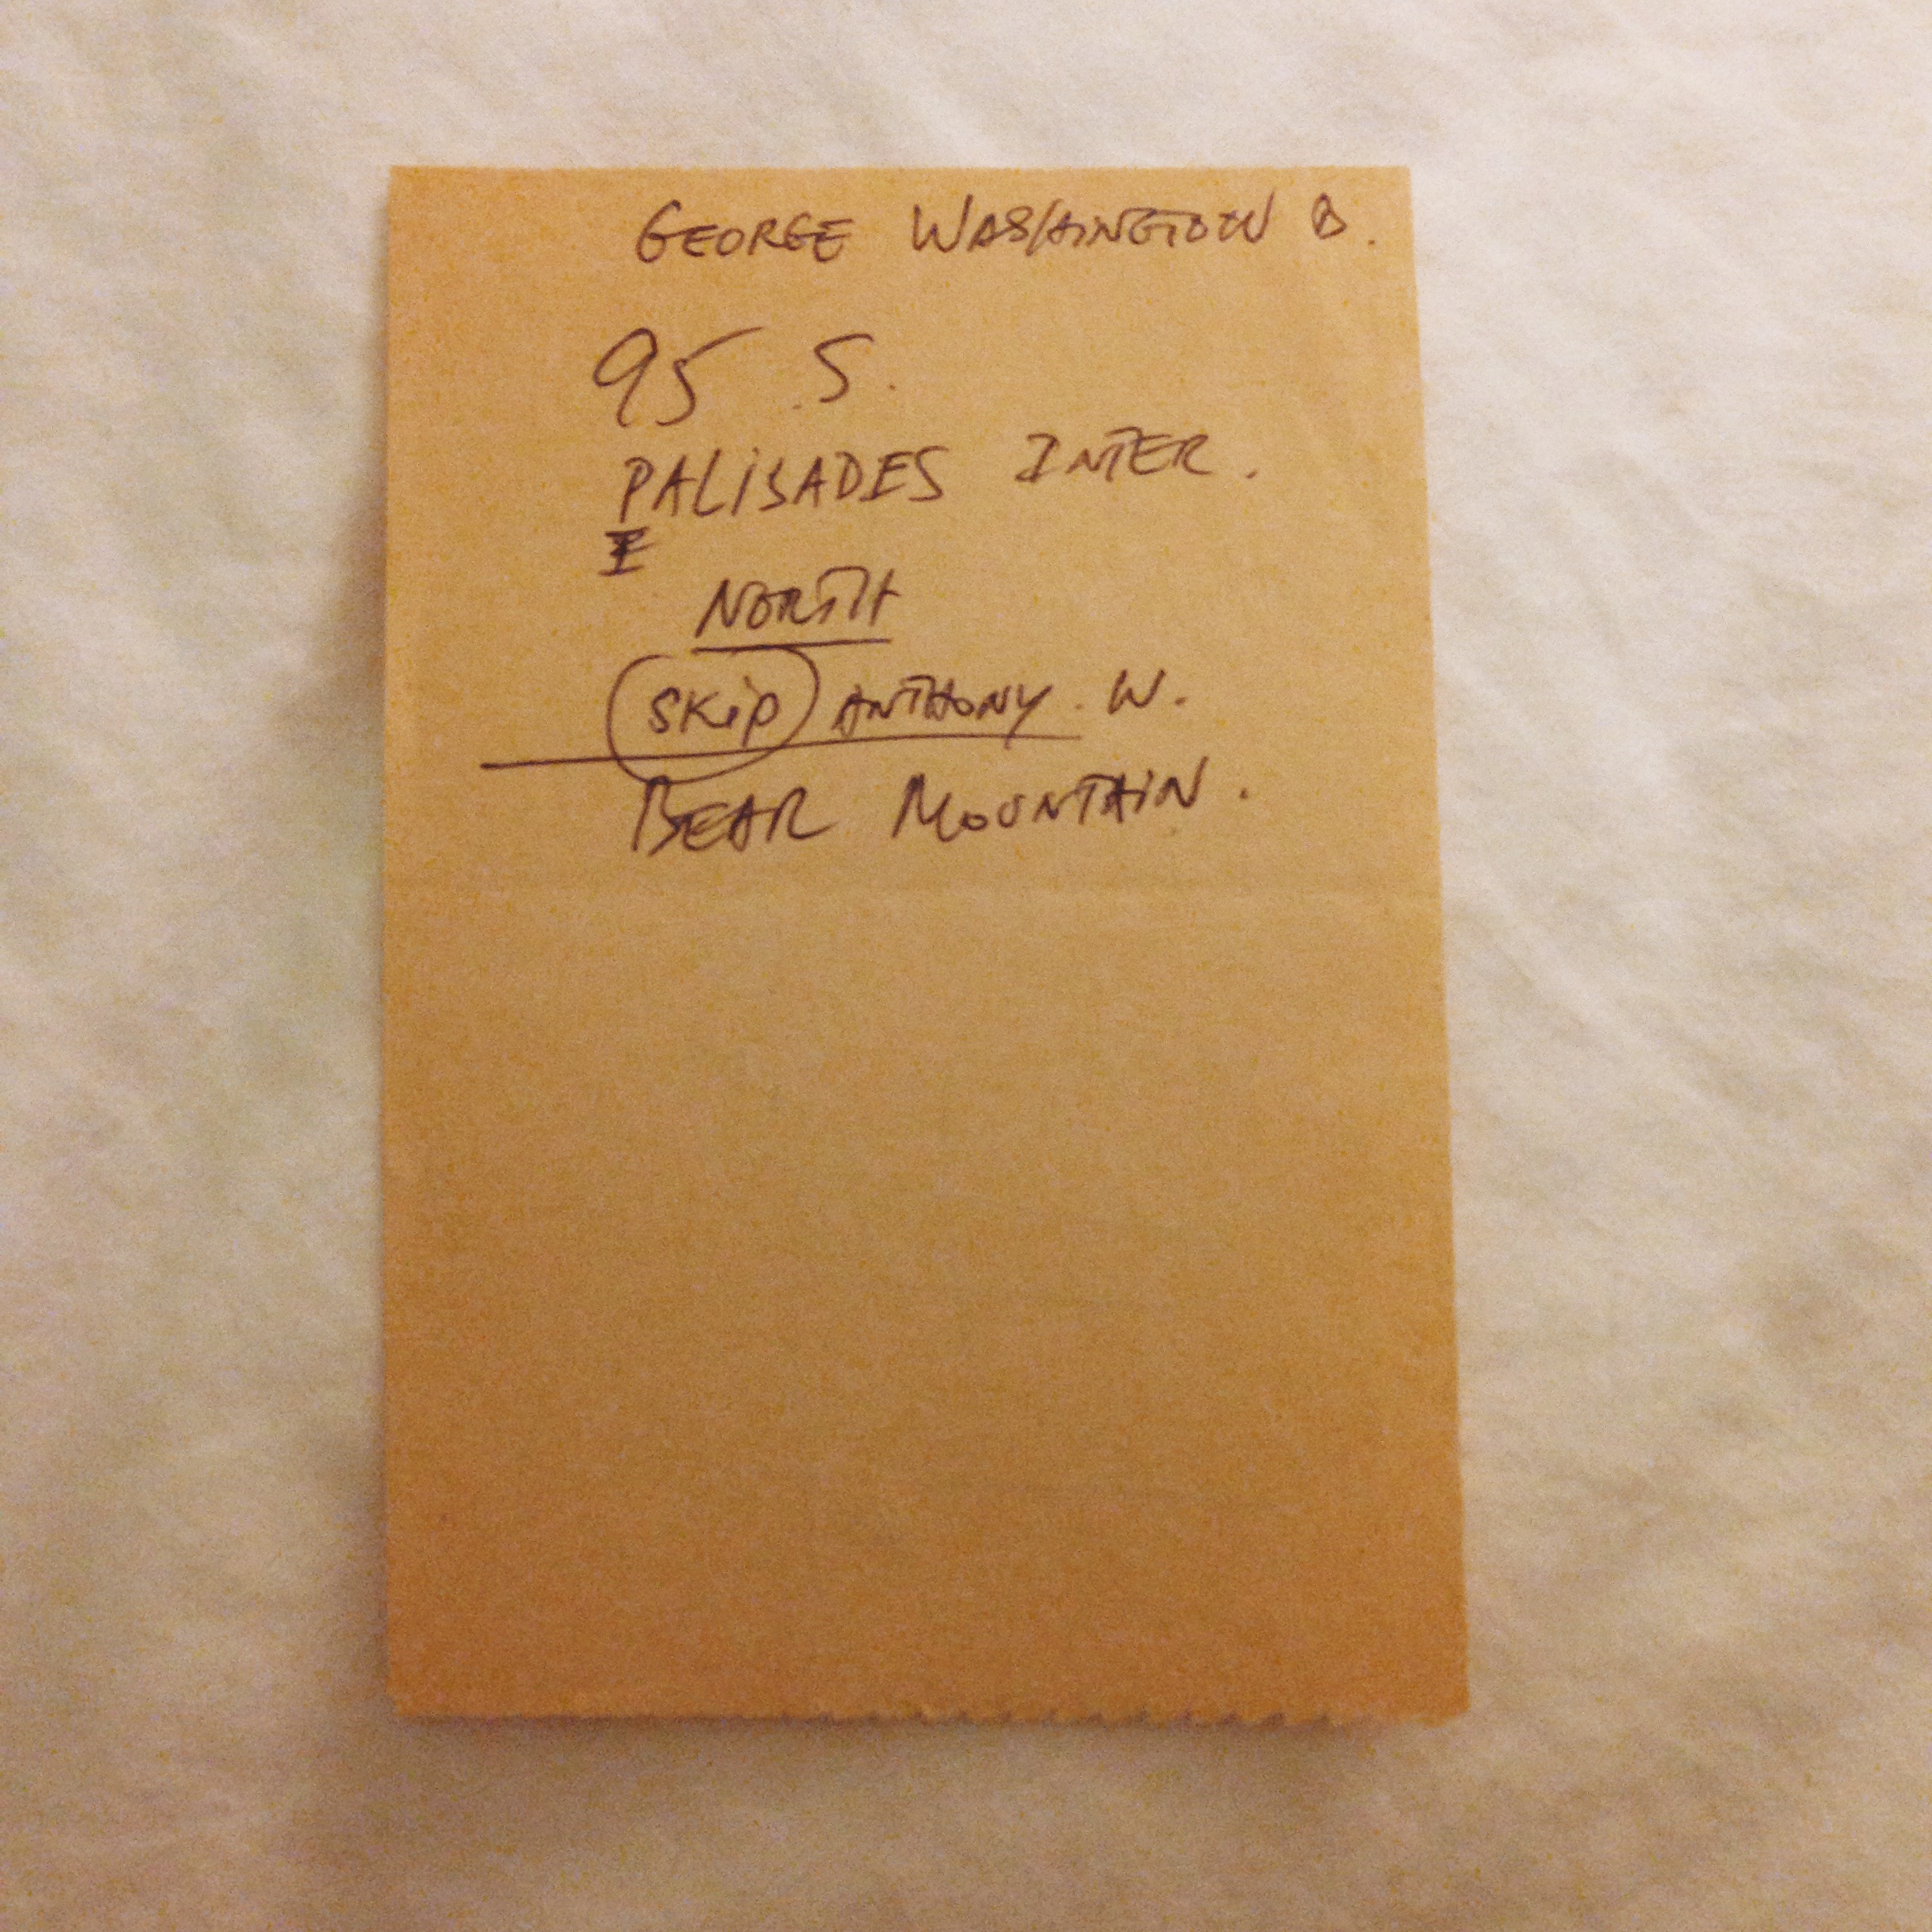 GEORGE WASHINGTON B.
95 S.
PALiSADES INTER.
NORTH
SKiP ANTHONY. W.
BEAR MOUNTAiN.